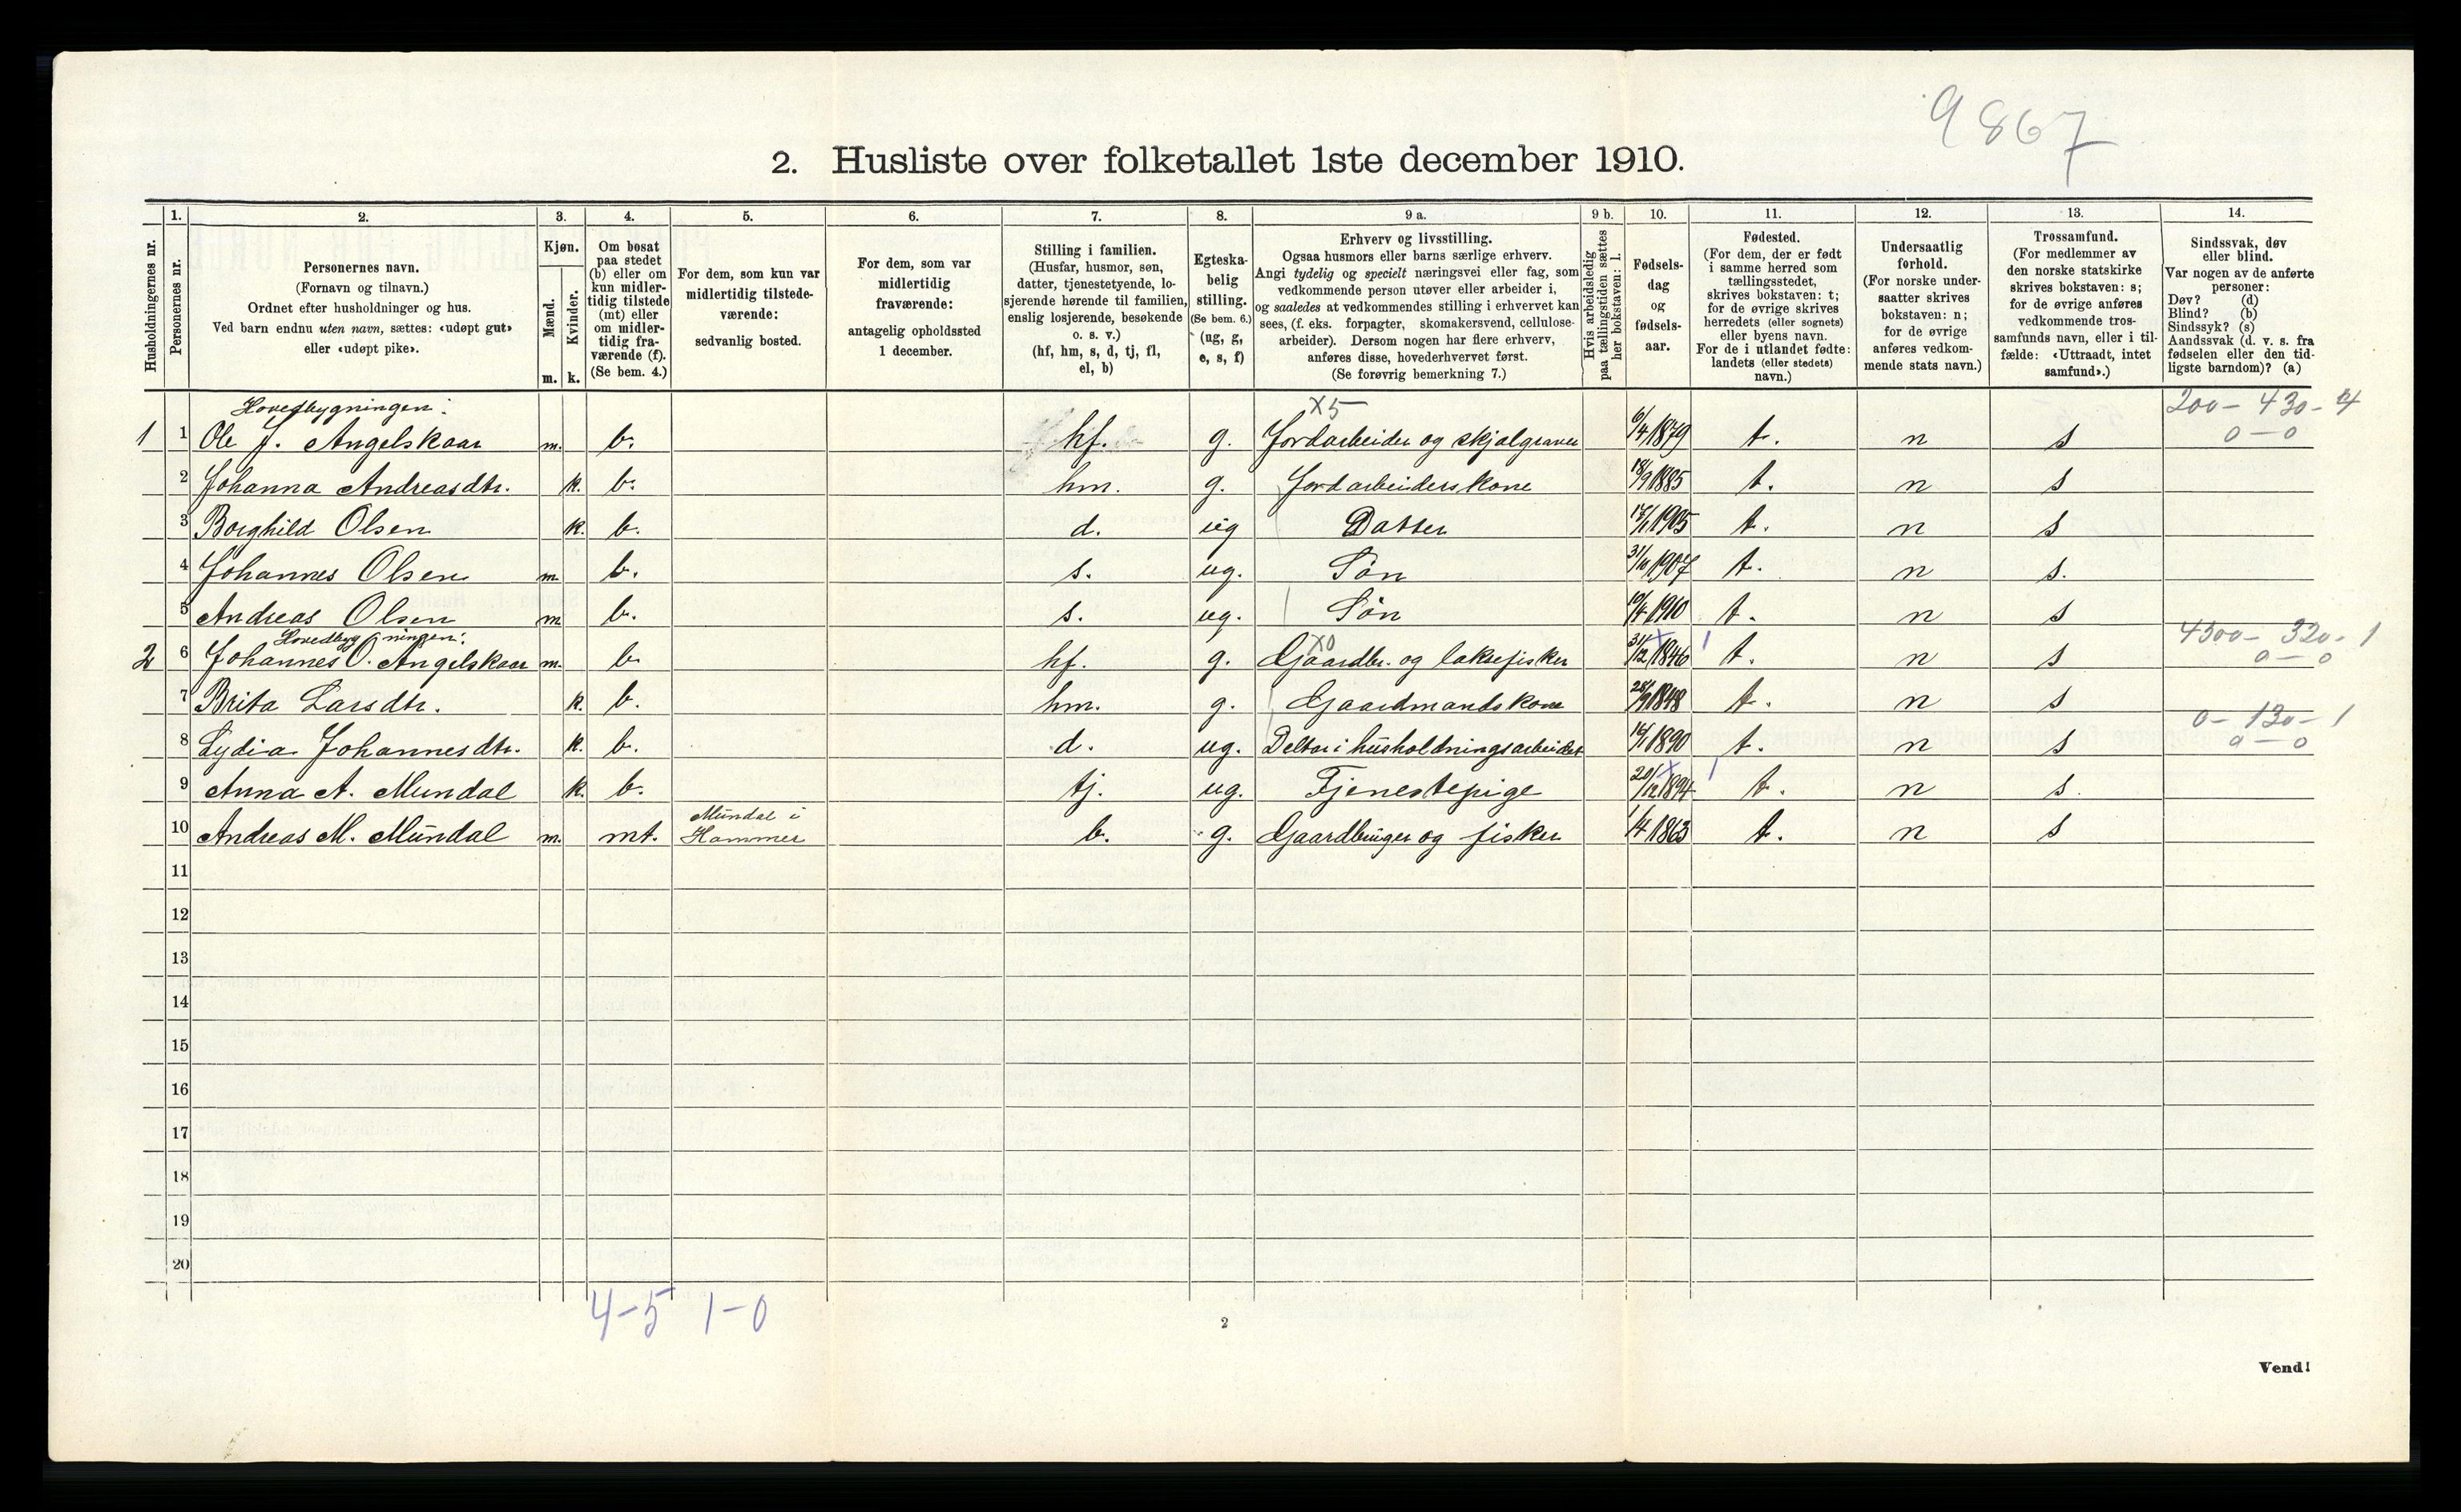 9867
2. Husliste over folketallet 1ste december 1910.
Husholdningernes nr.
1.
Personernes nr.
2.
Personernes navn.
(Fornavn og tilnavn.)
Ordnet efter husholdninger og hus.
Ved barn endnu uten navn, sættes: «udøpt gut»
eller «udøpt pike».
3.
Kjøn.
Mænd.
Kvinder.
m. k.
4.
Om bosat
paa stedet
(b) eller om
kun midler-
tidig tilstede
(mt) eller
om midler-
tidig fra-
værende (f).
(Se bem. 4.)
5.
For dem, som kun var
midlertidig tilstede-
værende:
sedvanlig bosted.
6.
For dem, som var
midlertidig
fraværende:
antagelig opholdssted
1 december.
7.
Stilling i familien.
(Husfar, husmor, søn,
datter, tjenestetyende, lo-
sjerende hørende til familien,
enslig losjerende, besøkende
o. s. v.)
(hf, hm, s, d, tj, fl,
el, b)
8.
Egteska-
belig
stilling.
(Se bem. 6.)
(ug, g,
e, s, f)
9 a.
Erhverv og livsstilling.
Ogsaa husmors eller barns særlige erhverv.
Angi tydelig og specielt næringsvei eller fag, som
vedkommende person utøver eller arbeider i,
og saaledes at vedkommendes stilling i erhvervet kan
sees, (f. eks. forpagter, skomakersvend, cellulose-
arbeider). Dersom nogen har flere erhverv,
anføres disse, hovederhvervet først.
(Se forøvrig bemerkning 7.)
9 b.
Hvis arbeidsledig
paa tællingstiden sættes
her bokstaven: l.
10.
Fødsels-
dag
og
fødsels-
aar.
11.
Fødested.
(For dem, der er født
i samme herred som
tællingsstedet,
skrives bokstaven: t;
for de øvrige skrives
herredets (eller sognets)
eller byens navn.
For de i utlandet fødte:
landets (eller stedets)
navn.)
12.
Undersaatlig
forhold.
(For norske under-
saatter skrives
bokstaven: n;
for de øvrige
anføres vedkom-
mende stats navn.)
13.
Trossamfund.
(For medlemmer av
den norske statskirke
skrives bokstaven: s;
for de øvrige anføres
vedkommende tros-
samfunds navn, eller i til-
fælde: «Uttraadt, intet
samfund».)
14.
Sindssvak, døv
eller blind.
Var nogen av de anførte
personer:
Døv? (d)
Blind? (b)
Sindssyk? (s)
Aandssvak (d. v. s. fra
fødselen eller den tid-
ligste barndom)? (a)
Hovedbygningen: X5 200 — 430 - 4
1 1 Ole J. Angelskaar m. b. hf. g. Jordarbeider og skjælgraver 6/4 1879 t. n s 0 — 0
2 Johanna Andreasdtr. k. b. hm. g. Jordarbeiderskone 18/9 1885 t. n s
3 Borghild Olsen k. b. d. ug Datter 17/1 1905 t. n s
4 Johannes Olsen m. b. s. ug. Søn 1907 t. n s.
5 Andreas Olsen m b. s. ug. Søn 10/4 1910 t. n s
Hovedbygningen: X0 4300 — 320 - 1
2 6 Johannes O. Angelskaar m. b. hf. g. Gaardbr. og laksefisker 31/12 1846 t. n s 0 — 0
7 Brita Larsdtr. k. b. hm. g. Gaardmandskone 28/9 1848 t. n s
0 — 130 - 1
8 Lydia Johannesdtr. k. b. d. ug. Deltar i husholdningsarbeidet 14/1 1890 t. n s 0 — 0
9 Anna A. Mundal k. b. tj. ug. Tjenestepige 20/12 1894 t. n s.
Mundal i
10 Andreas M. Mundal m. mt. Hammer b. g. Gaardbruger og fisker 1/4 1863 t. n s
11
12
13
14
15
16
17
18
19
20
4-5 1-0
2
Vend!